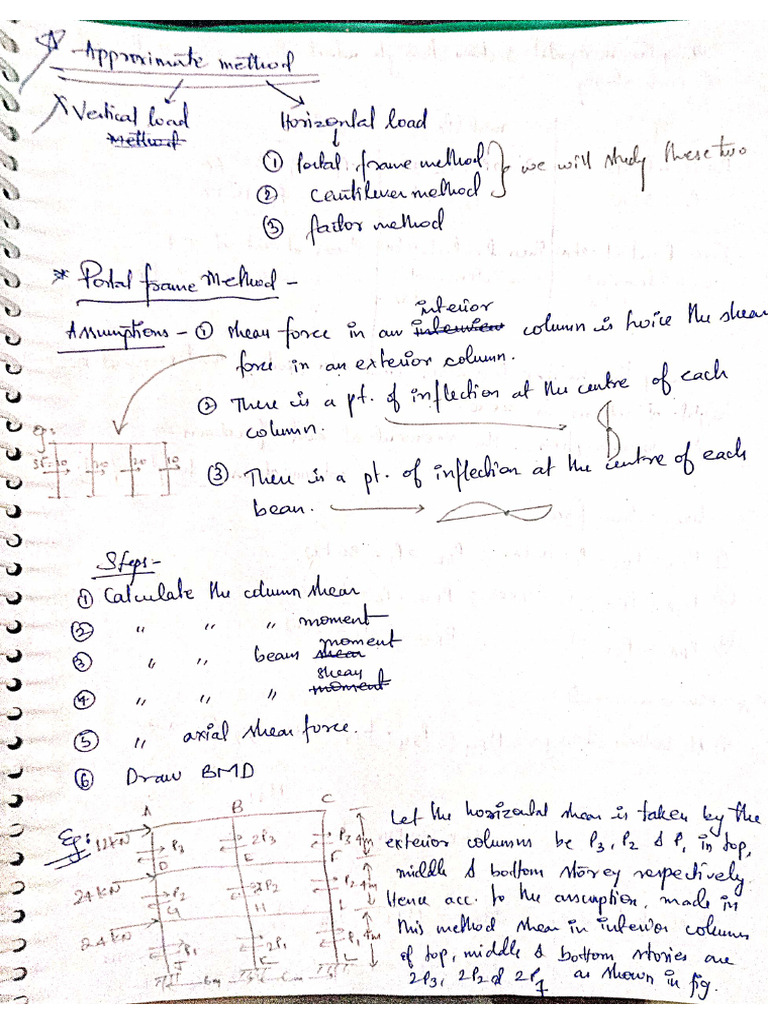 Approximate method
Vertical load Horizontal load
Method
① Portal frame method } we will study these two
② Cantilever method
③ factor method
* Portal frame Method -
interior
Assumptions - ① shear force in an interview column is twice the shear
force in an exterior column.
② There is a pt. of inflection at the centre of each
column.
③ There is a pt. of inflection at the centre of each
beam.
Steps:-
① Calculate the column shear
② " " " moment
moment
③ " " beam shear
shear
④ " " " moment
⑤ " axial shear force.
⑥ Draw BMD
A B C
Eg: 12 kN P3 2P3 P3 4m
D E F
24 kN P2 2P2 P2 4m
G H I
24 kN P1 2P1 P1 4m
J K L
6m 6m
Let the horizontal shear is taken by the
exterior columns be P3, P2 & P1 in top,
middle & bottom storey respectively.
Hence acc. to the assumption, made in
this method shear in interior columns
of top, middle & bottom stories are
2P3, 2P2 & 2P1 as shown in fig.